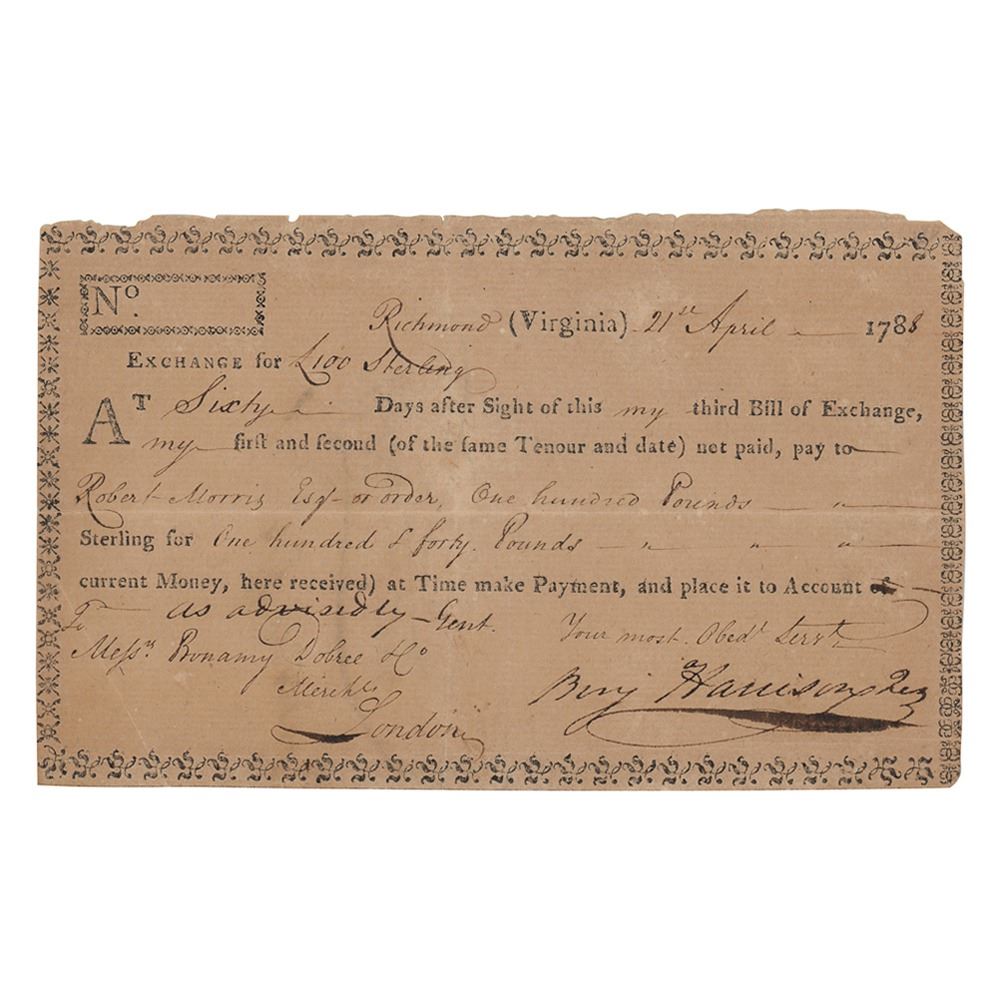 No.
Richmond (Virginia) 21st April 1788
EXCHANGE for £100 Sterling
AT Sixty Days after Sight of this my third Bill of Exchange,
my first and second (of the same Tenour and date) not paid, pay to
Robert Morris Esqr or order, One hundred Pounds
Sterling for One hundred & forty Pounds
current Money, here received) at Time make Payment, and place it to Account of
as advised by Gent. Your most Obedt Servt
To
Messrs Bonamy Dobree & Co
Merchts
Benj Harrison Jr
London